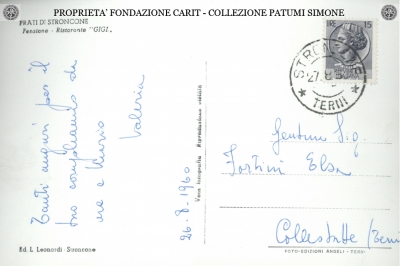 PROPRIETA' FONDAZIONE CARIT - COLLEZIONE PATUMI SIMONE
PRATI DI STRONCONE
Pensione - Ristorante "GIGI"
Tanti auguri per il
tuo compleanno da
me e
Valeria
26-8-1960
Vera fotografia Riproduzione vietata
Ed. L. Leonardi - Stroncone
POSTE ITALIANE
15
27.8
TERNI
Gentma Sig.
Fortini Elsa
Collestatte (Terni
FOTO-EDIZIONI ANGELI - TERNI